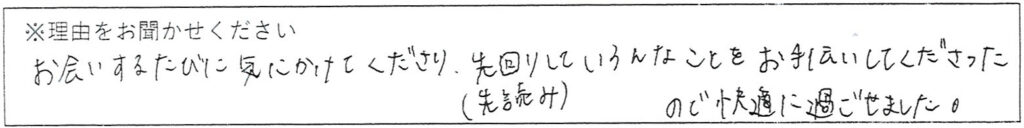 ※理由をお聞かせください
お会いするたびに気にかけてくださり、先回りしていろんなことをお手伝いしてくださった
(先読み)
ので快適に過ごせました。